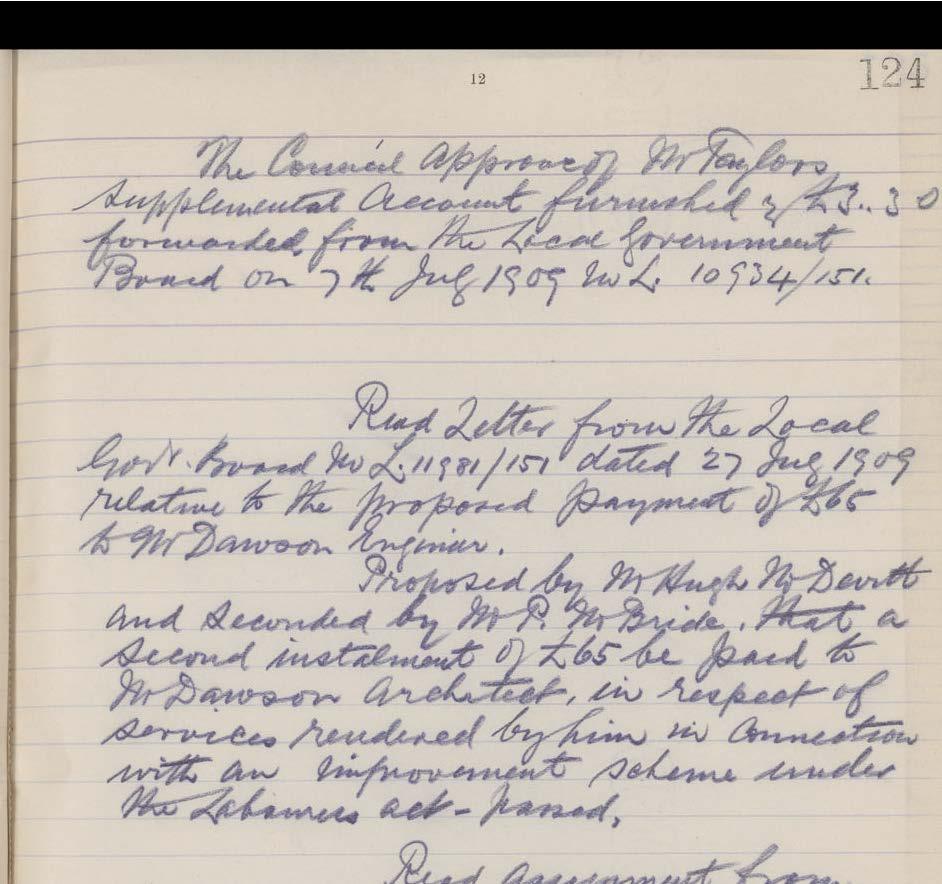 12
124
The Council Approve of Mr Taylors
Supplemental Account furnished of £3.. 3 0
forwarded from the Local Government
Board on 7th July 1909 No L. 10934/151.
Read Letter from the Local
Govt. Board No L. 11981/151 dated 27 July 1909
relative to the proposed payment of £65
to Mr Dawson Engineer.
Proposed by Mr Hugh McDevitt
and seconded by Mr P. McBride. That a
second instalment of £65 be paid to
Mr Dawson Architect, in respect of
services rendered by him in connection
with an improvement scheme under
the Labourers act - passed,
Read assignment from